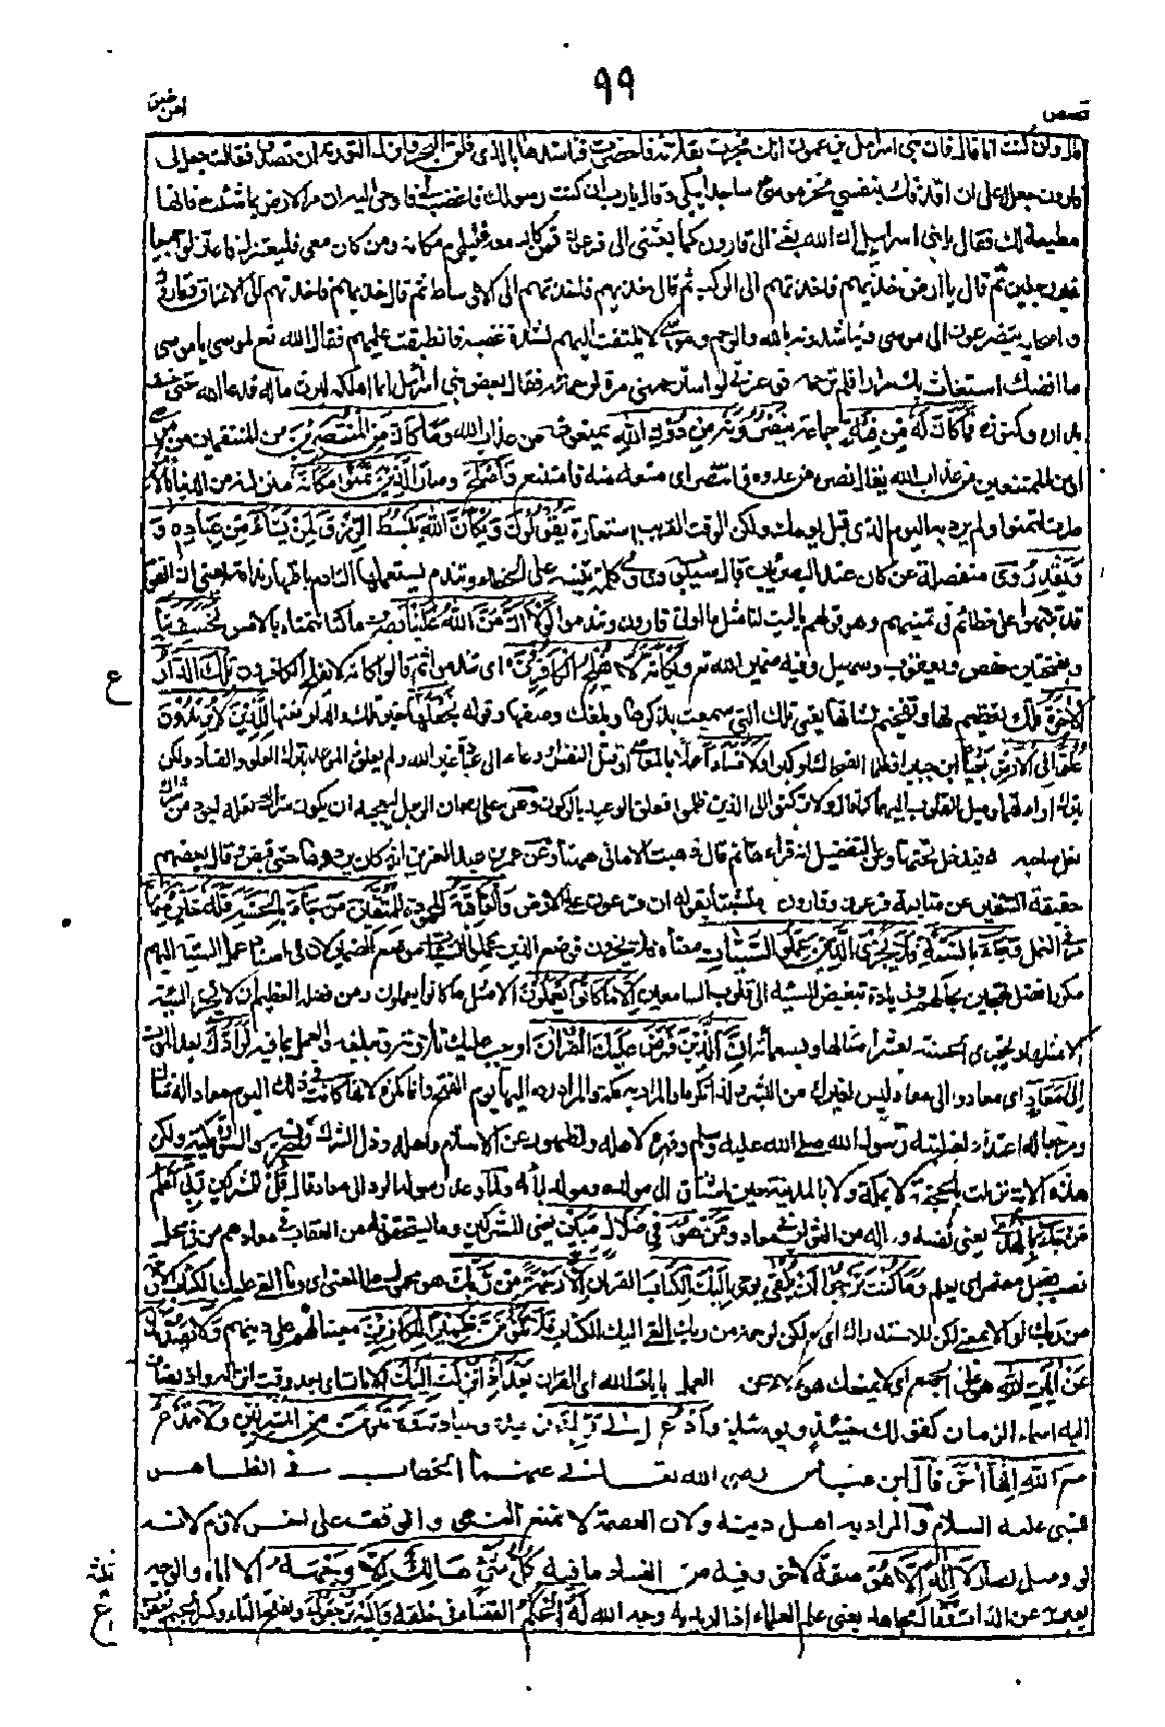 ٩٩
قصص
امن خلق
قال وان كنت انا قال فان بنى اسرائيل يزعمون انك فجرت بفلانة فاحضرت فناشدها بالذى فلق البحر وانزل التورية ان تصدق فقالت جعل لى
قارون جعلا على ان اقذفك بنفسي فخر موسى ساجدا يبكى وقال يارب ان كنت رسولك فاغضب لى فاوحى اليه ان مر الارض بما شئت فانها
مطيعة لك فقال يا بنى اسرائيل ان الله بعثنى الى قارون كما بعثنى الى فرعون فمن كان معه فليلزم مكانه ومن كان معى فليعتزل فاعتزلوا جميعا
غير رجلين ثم قال يا ارض خذيهم فاخذتهم الى الركب ثم قال خذيهم فاخذتهم الى الاوساط ثم قال خذيهم فاخذتهم الى الاعناق وقارون
واصحابه يتضرعون الى موسى ويناشدونه بالله والرحم وموسى لا يلتفت اليهم لشدة غضبه فانطبقت عليهم فقال الله تع لموسى يا موسى
ما افضك استغاث بك مرارا فلم ترحمه فوعزتى لو استرحمنى مرة لرحمته فقال بعض بنى اسرائيل انما اهلكه ليرث ماله فدعا الله حتى خسف
بداره وكنوزه فما كان له من فئة جماعة ينصرونه من دون الله يمنعونه من عذاب الله وما كان من المنتصرين من المنتقمين من موسى
او من الممتنعين من عذاب الله يقال نصره من عدوه فانتصر اى منعه منه فامتنع واصبح وصار الذين تمنوا مكانه منزلته من الدنيا بالامس
ظرف لتمنوا ولم يرد به اليوم الذى قبل يومك ولكن الوقت القريب استعارة يقولون ويكان الله يبسط الرزق لمن يشاء من عباده و
ويقدر وى منفصلة عن كان عند البصريين قال سيبويه وى كلمة تنبه على الخطاء وتندم يستعملها النادم باظهار ندامته يعنى ان القوم
قد تنبهوا على خطائهم فى تمنيهم وهو قولهم يا ليت لنا مثل ما اوتى قارون وتندموا لولا ان من الله علينا بصرف ما كنا نتمناه بالامس لخسف بنا
وبفتحتين حفص ويعقوب وسهيل وفيه ضمير الله تع ويكانه لا يفلح الكافرون اى تندموا ثم قالوا كانه لا يفلح الكافرون تلك الدار
الآخرة تلك تعظيم لها وتفخيم لشانها يعنى تلك التى سمعت بذكرها وبلغك وصفها وقوله نجعلها خبر تلك والدار نعتها للذين لا يريدون
علوا فى الارض بغيا ابن جبير او ظلما الضحاك او كبرا ولا فسادا عملا بالمعاصى او قتل النفس او دعاء الى عبادة غير الله ولم يعلق الموعد بترك العلو والفساد ولكن
بترك ارادتهما وميل القلوب اليهما كما قال ولا تركنوا الى الذين ظلموا فعلق الوعيد بالركون وعن على ان الرجل ليعجبه ان يكون شراك نعله اجود من شراك
نعل صاحبه فيدخل تحتها وعن الفضيل انه قراءها ثم قال ذهبت الامانى ههنا وعن عمر بن عبد العزيز انه كان يرددها حتى قبض وقال بعضهم
حقيقة التنفير عن متابعة فرعون وقارون متشبثا بقوله ان فرعون علا فى الارض والعاقبة المحمودة للمتقين من جاء بالحسنة فله خير منها
مر فى النمل ومن جاء بالسيئة فلا يجزى الذين عملوا السيئات معناه فلا يجزون فوضع الذين عملوا السيئات موضع الضمير لان فى اسناد عمل السيئة اليهم
مكررا فضل تهجين بحالهم وزيادة تبغيض السيئة الى قلوب السامعين الا ما كانوا يعملون الا مثل ما كانوا يعملون ومن فضله العظيم ان لا يجزى السيئة
الا مثلها ويجزى الحسنة بعشر امثالها وبسبعمائة ان الذى فرض عليك القرآن اوجب عليك تلاوته وتبليغه والعمل بما فيه لرادك بعد الموت
الى معاد اى معاد والى معاد ليس لغيرك من البشر ولذا نكره او المراد به مكة والمراد رده اليها يوم الفتح وانما نكره لانها كانت فى ذلك اليوم معادا له شان
ومرجعا له اعتداد لغلبة رسول الله صلى الله عليه وسلم وقهره لاهله ولظهور عز الاسلام واهله وذل الشرك وحزبه والسورة مكية ولكن
هذه الاية نزلت بالجحفة لا بمكة ولا بالمدينة حين اشتاق الى مولده ومولد ابائه ولما وعد رسوله الرد الى معاد قال قل للمشركين ربى اعلم
من جاء بالهدى يعنى نفسه وما له من الثواب فى معاده ومن هو فى ضلال مبين يعنى المشركين وما يستحقونه من العقاب فى معادهم من فى محل
نصب بفعل مضمر اى يعلم وما كنت ترجوا ان يلقى يوحى اليك الكتاب القران الا رحمة من ربك هو محمول على المعنى اى وما القى عليك الكتاب الا رحمة
من ربك او الا بمعنى لكن للاستدراك اى ولكن لرحمة من ربك القى اليك الكتاب فلا تكونن ظهيرا للكافرين معينا لهم على دينهم ولا يصدنك
عن آيات الله هو على الجمع اى لا يمنعك هؤلاء عن العمل بايات الله اى القران بعد اذ انزلت اليك الايات اى بعد وقت انزاله واذ يضاف
اليه اسماء الزمان كقولك حينئذ ويومئذ وادع الى ربك الى توحيده وعبادته ولا تكونن من المشركين ولا تدع
مع الله الها آخر قال ابن عباس رضى الله تعالى عنهما الخطاب فى الظاهر
للنبى عليه السلام والمراد به اهل دينه ولان العصمة لا تمنع النهى والوقف على اخر لازم لانه
لو وصل لصار لا اله الا هو صفة لاخر وفيه من الفساد ما فيه كل شئ هالك الا وجهه الا اياه والوجه
يعبر به عن الذات وقال مجاهد يعنى علم العلماء اذا اريد به وجه الله له الحكم القضاء فى خلقه واليه ترجعون وبفتح التاء وكسر الجيم يعقوب
ع
ثلثة
ع